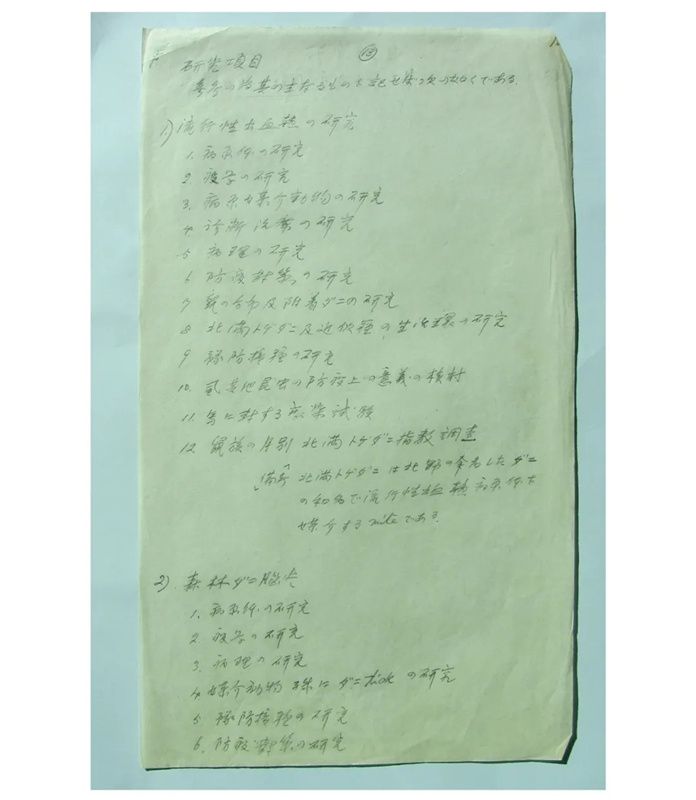 ⑬
研究項目
参考の為其の主なるものを記せば次の如くである.
1) 流行性出血熱の研究
1. 病原体の研究
2. 疫学の研究
3. 病原媒介動物の研究
4. 診断治療の研究
5 病理の研究
6 防疫対策の研究
7 鼠の分布及附着ダニの研究
8 北満トゲダニ及近似種の生活環の研究
9 予防接種の研究
10. 虱其他昆虫の防疫上の意義の検討
11. 馬に対する感染試験
12 鼠族の月別北満トゲダニ指数調査
備考 北満トゲダニは北野の命名したダニ
の和名で流行性出血熱病原体を
媒介するmiteである.
2) 森林ダニ脳炎
1. 病原体の研究
2. 疫学の研究
3. 病理の研究
4 媒介動物 殊に ダニtickの研究
5 予防接種の研究
6. 防疫対策の研究